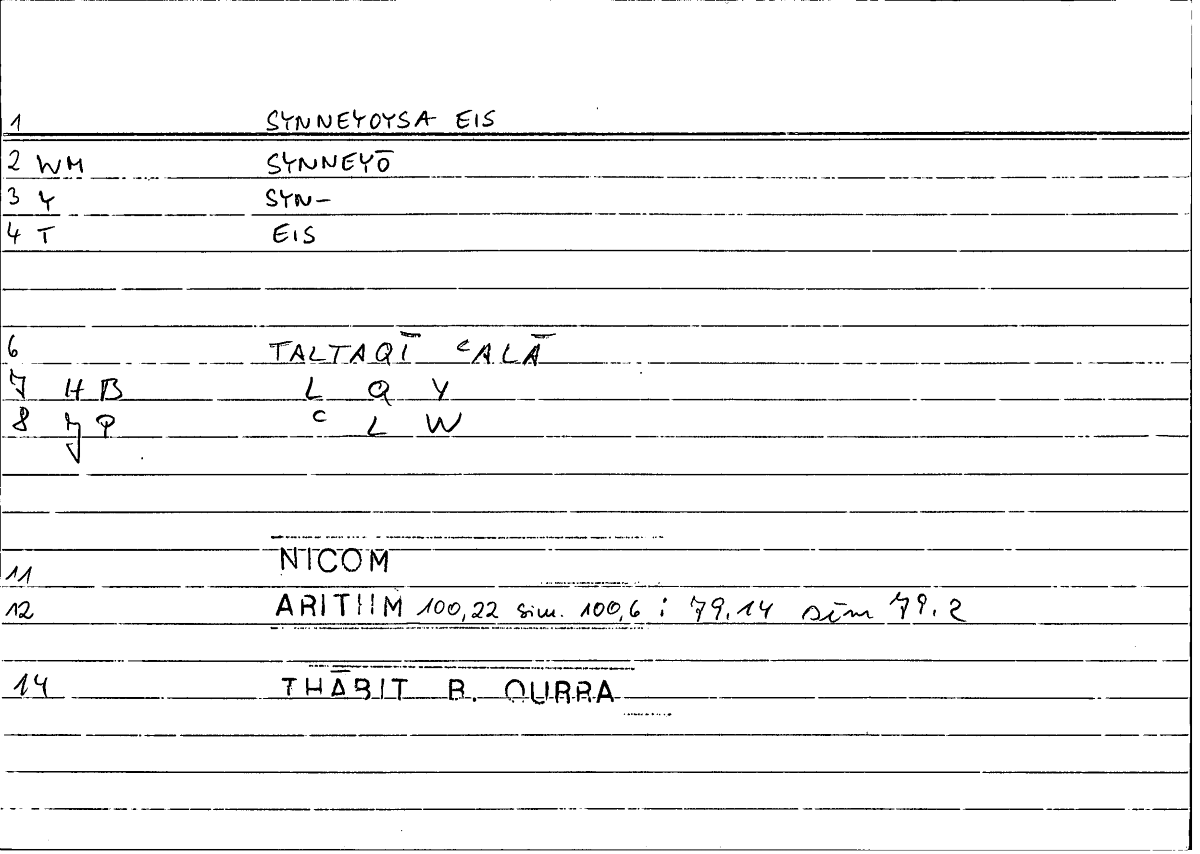 1 SYNNEYOYSA EIS
2 WM SYNNEYŌ
3 Y SYN-
4 T EIS
6 TALTAQĪ ᶜALĀ
7 HB L Q Y
8 P ᶜ L W
11 NICOM
12 ARITHM 100,22 sim. 100,6 : 79.14 sim 79.2
14 THĀBIT B. QURRA